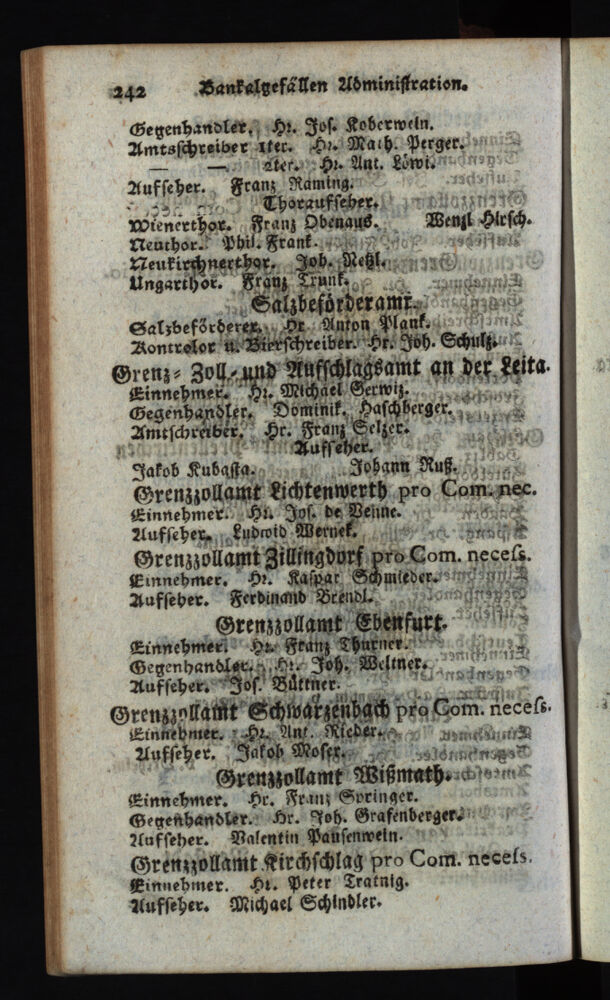 242 Bankalgefällen Administration.
Gegenhandler. Hr. Jos. Koberwein.
Amtsschreiber 1ter. Hr. Math. Perger.
— — 2ter. Hr. Ant. Löwi.
Aufseher. Franz Raming.
Thoraufseher.
Wienerthor. Franz Obenaus. Wenzl Hirsch.
Neuthor. Phil. Frank.
Neukirchnerthor. Joh. Netzl.
Ungarthor. Franz Trunk.
Salzbeförderamt.
Salzbeförderer. Hr. Anton Plank.
Kontrolor u. Bierschreiber. Hr. Joh. Schulz.
Grenz- Zoll- und Aufschlagsamt an der Leita.
Einnehmer. Hr. Michael Gerwiz.
Gegenhandler. Dominik. Haschberger.
Amtschreiber. Hr. Franz Selzer.
Aufseher.
Jakob Kubasta. Johann Ruß.
Grenzzollamt Lichtenwerth pro Com. nec.
Einnehmer. Hr. Jos. de Venne.
Aufseher. Ludwid Wernek.
Grenzzollamt Zillingdorf pro Com. necess.
Einnehmer. Hr. Kaspar Schmieder.
Aufseher. Ferdinand Brendl.
Grenzzollamt Ebenfurt.
Einnehmer. Hr. Franz Thurner.
Gegenhandler. Hr. Joh. Weltner.
Aufseher. Jos. Büttner.
Grenzzollamt Schwarzenbach pro Com. necess.
Einnehmer. Hr. Ant. Rieder.
Aufseher. Jakob Moser.
Grenzzollamt Wißmath.
Einnehmer. Hr. Franz Springer.
Gegenhandler. Hr. Joh. Grafenberger.
Aufseher. Valentin Pausenwein.
Grenzzollamt Kirchschlag pro Com. necess.
Einnehmer. Hr. Peter Tratnig.
Aufseher. Michael Schindler.